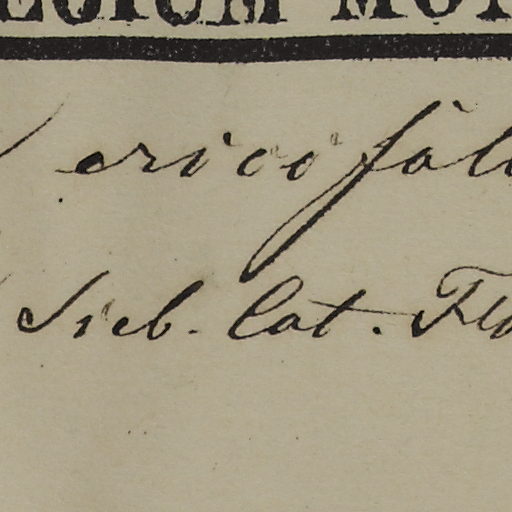 EGIUM MO
ericofol
Sieb. Cat. Flo